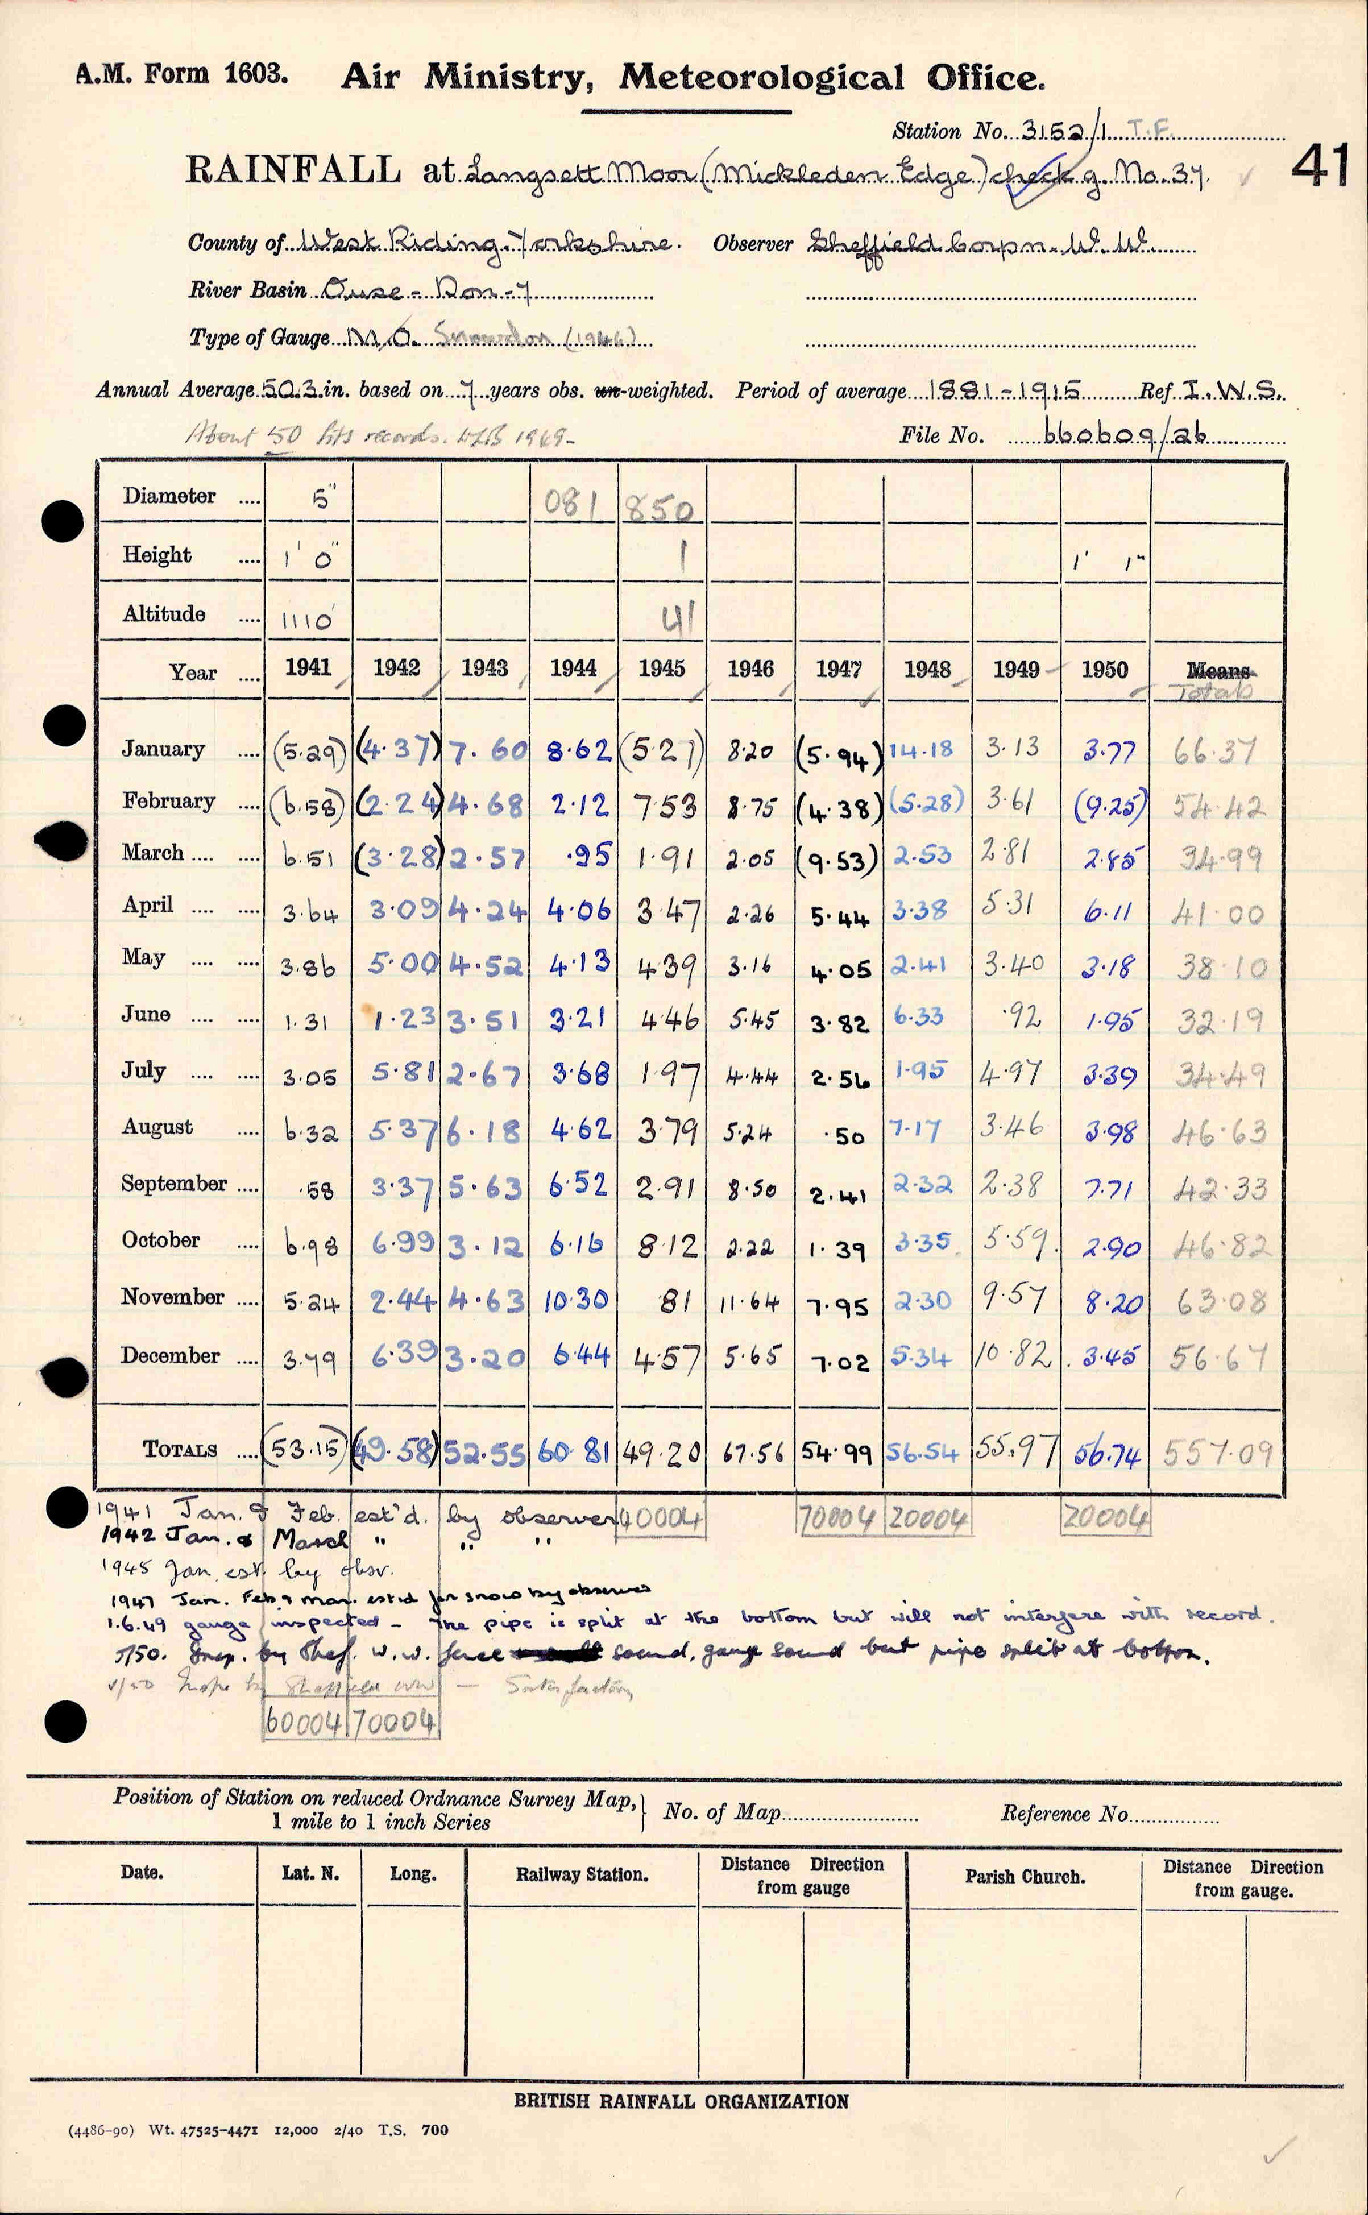 A.M. Form 1603. Air Ministry, Meteorological Office.
Station No. 3152/1 T.F.
41
RAINFALL at Langsett Moor (Mickleden Edge) check g. No. 37
County of West Riding, Yorkshire. Observer Sheffield Corpn. W. W.
River Basin Ouse - Don - 7
Type of Gauge M.O. Snowdon (1946)
Annual Average 50.3 in. based on 7 years obs. un-weighted. Period of average 1881-1915 Ref I.W.S.
About 50 fits records. 1969- File No. 660609/26
Diameter .... 5" 081 850
Height .... 1' 0" 1 1' 1"
Altitude .... 1110' 41
Year .... 1941 1942 1943 1944 1945 1946 1947 1948 1949 1950 Means
Totals
January .... (5.29) (4.37) 7.60 8.62 (5.27) 8.20 (5.94) 14.18 3.13 3.77 66.37
February .... (6.58) (2.24) 4.68 2.12 7.53 8.75 (4.38) (5.28) 3.61 (9.25) 54.42
March .... .... 6.51 (3.28) 2.57 .95 1.91 2.05 (9.53) 2.53 2.81 2.85 34.99
April .... .... 3.64 3.09 4.24 4.06 3.47 2.26 5.44 3.38 5.31 6.11 41.00
May .... .... 3.86 5.00 4.52 4.13 439 3.16 4.05 2.41 3.40 3.18 38.10
June .... .... 1.31 1.23 3.51 3.21 446 5.45 3.82 6.33 .92 1.95 32.19
July .... .... 3.05 5.81 2.67 3.68 1.97 4.44 2.56 1.95 4.97 3.39 34.49
August .... 6.32 5.37 6.18 4.62 3.79 5.24 .50 7.17 3.46 3.98 46.63
September .... .58 3.37 5.63 6.52 2.91 8.50 2.41 2.32 2.38 7.71 42.33
October .... 6.98 6.99 3.12 6.16 8.12 2.22 1.39 3.35 5.59 2.90 46.82
November .... 5.24 2.44 4.63 10.30 81 11.64 7.95 2.30 9.57 8.20 63.08
December .... 3.79 6.39 3.20 6.44 4.57 5.65 7.02 5.34 10.82 3.45 56.67
TOTALS .... (53.15) (49.58) 52.55 60.81 49.20 67.56 54.99 56.54 55.97 56.74 557.09
1941 Jan. & Feb. est'd. by observer 40004 70004 20004 20004
1942 Jan. & March " " "
1945 Jan. est. by obsr.
1947 Jan. Feb & Mar. est'd for snow by observer
1.6.49 gauge inspected - The pipe is split at the bottom but will not interfere with record.
5/50. Insp. by Shef. W.W. fence sound, gauge sound but pipe split at bottom.
Sheffield WW - Satisfactory
60004 70004
Position of Station on reduced Ordnance Survey Map, } No. of Map.......... Reference No..........
1 mile to 1 inch Series
Date. Lat. N. Long. Railway Station. Distance Direction from gauge Parish Church. Distance Direction from gauge.
BRITISH RAINFALL ORGANIZATION
(4486-90) Wt. 47525-4471 12,000 2/40 T.S. 700